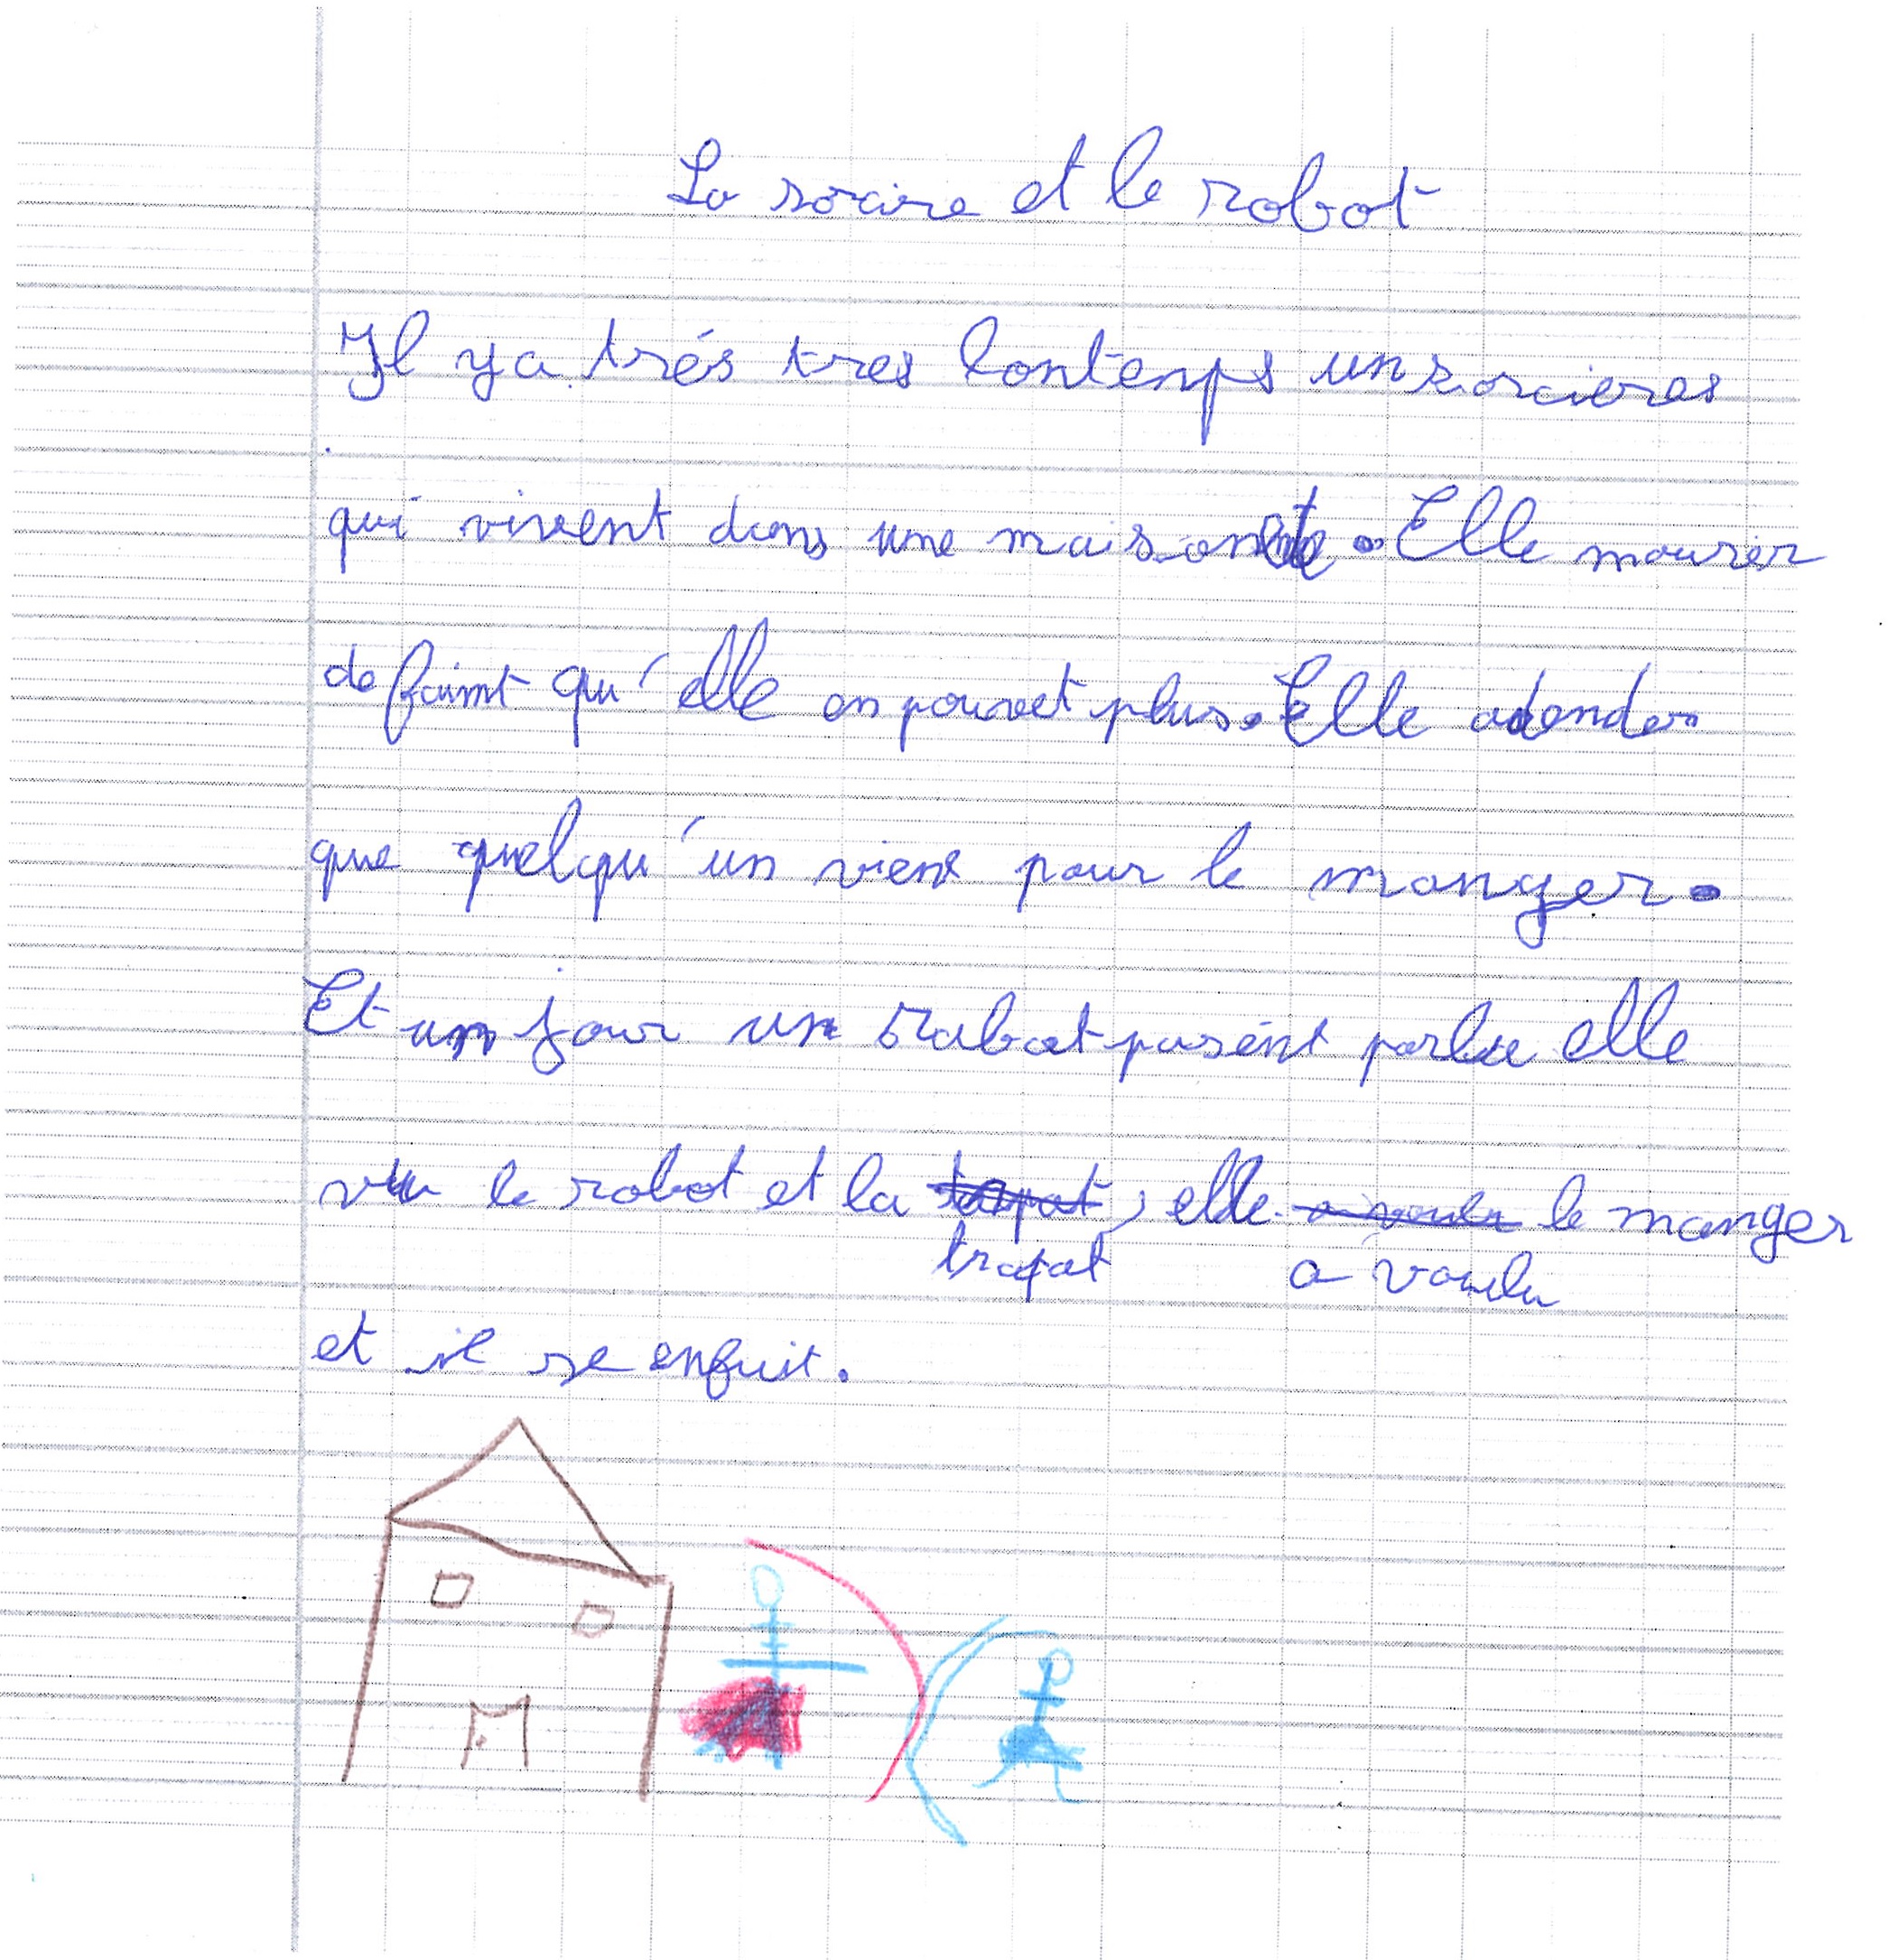 La sorcire et le robot
Il y a trés tres lontemps un sorcieres
qui vivent dans une maisonete. Elle mourer
de faimt qu'elle en pouvet plus. Elle atender
que quelqu'un viens pour le manger.
Et un jour un robot pasént parlee elle
vu le robot et la trapat, elle a voulu le manger
et il se enfuit.